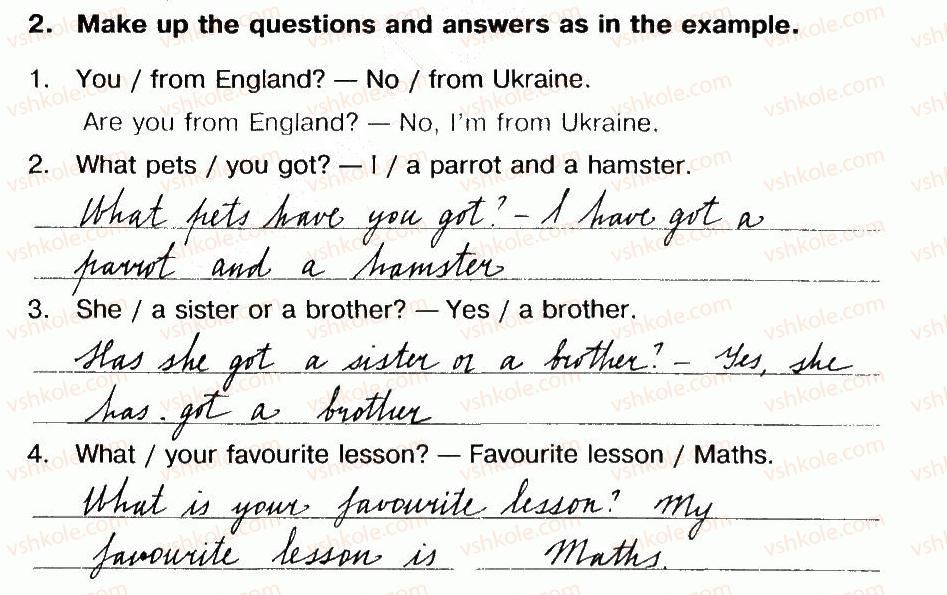 2. Make up the questions and answers as in the example.
1. You / from England? — No / from Ukraine.
Are you from England? — No, I'm from Ukraine.
2. What pets / you got? — I / a parrot and a hamster.
What pets have you got? – I have got a
parrot and a hamster
3. She / a sister or a brother? — Yes / a brother.
Has she got a sister or a brother? – Yes, she
has got a brother
4. What / your favourite lesson? — Favourite lesson / Maths.
What is your favourite lesson? My
favourite lesson is Maths.